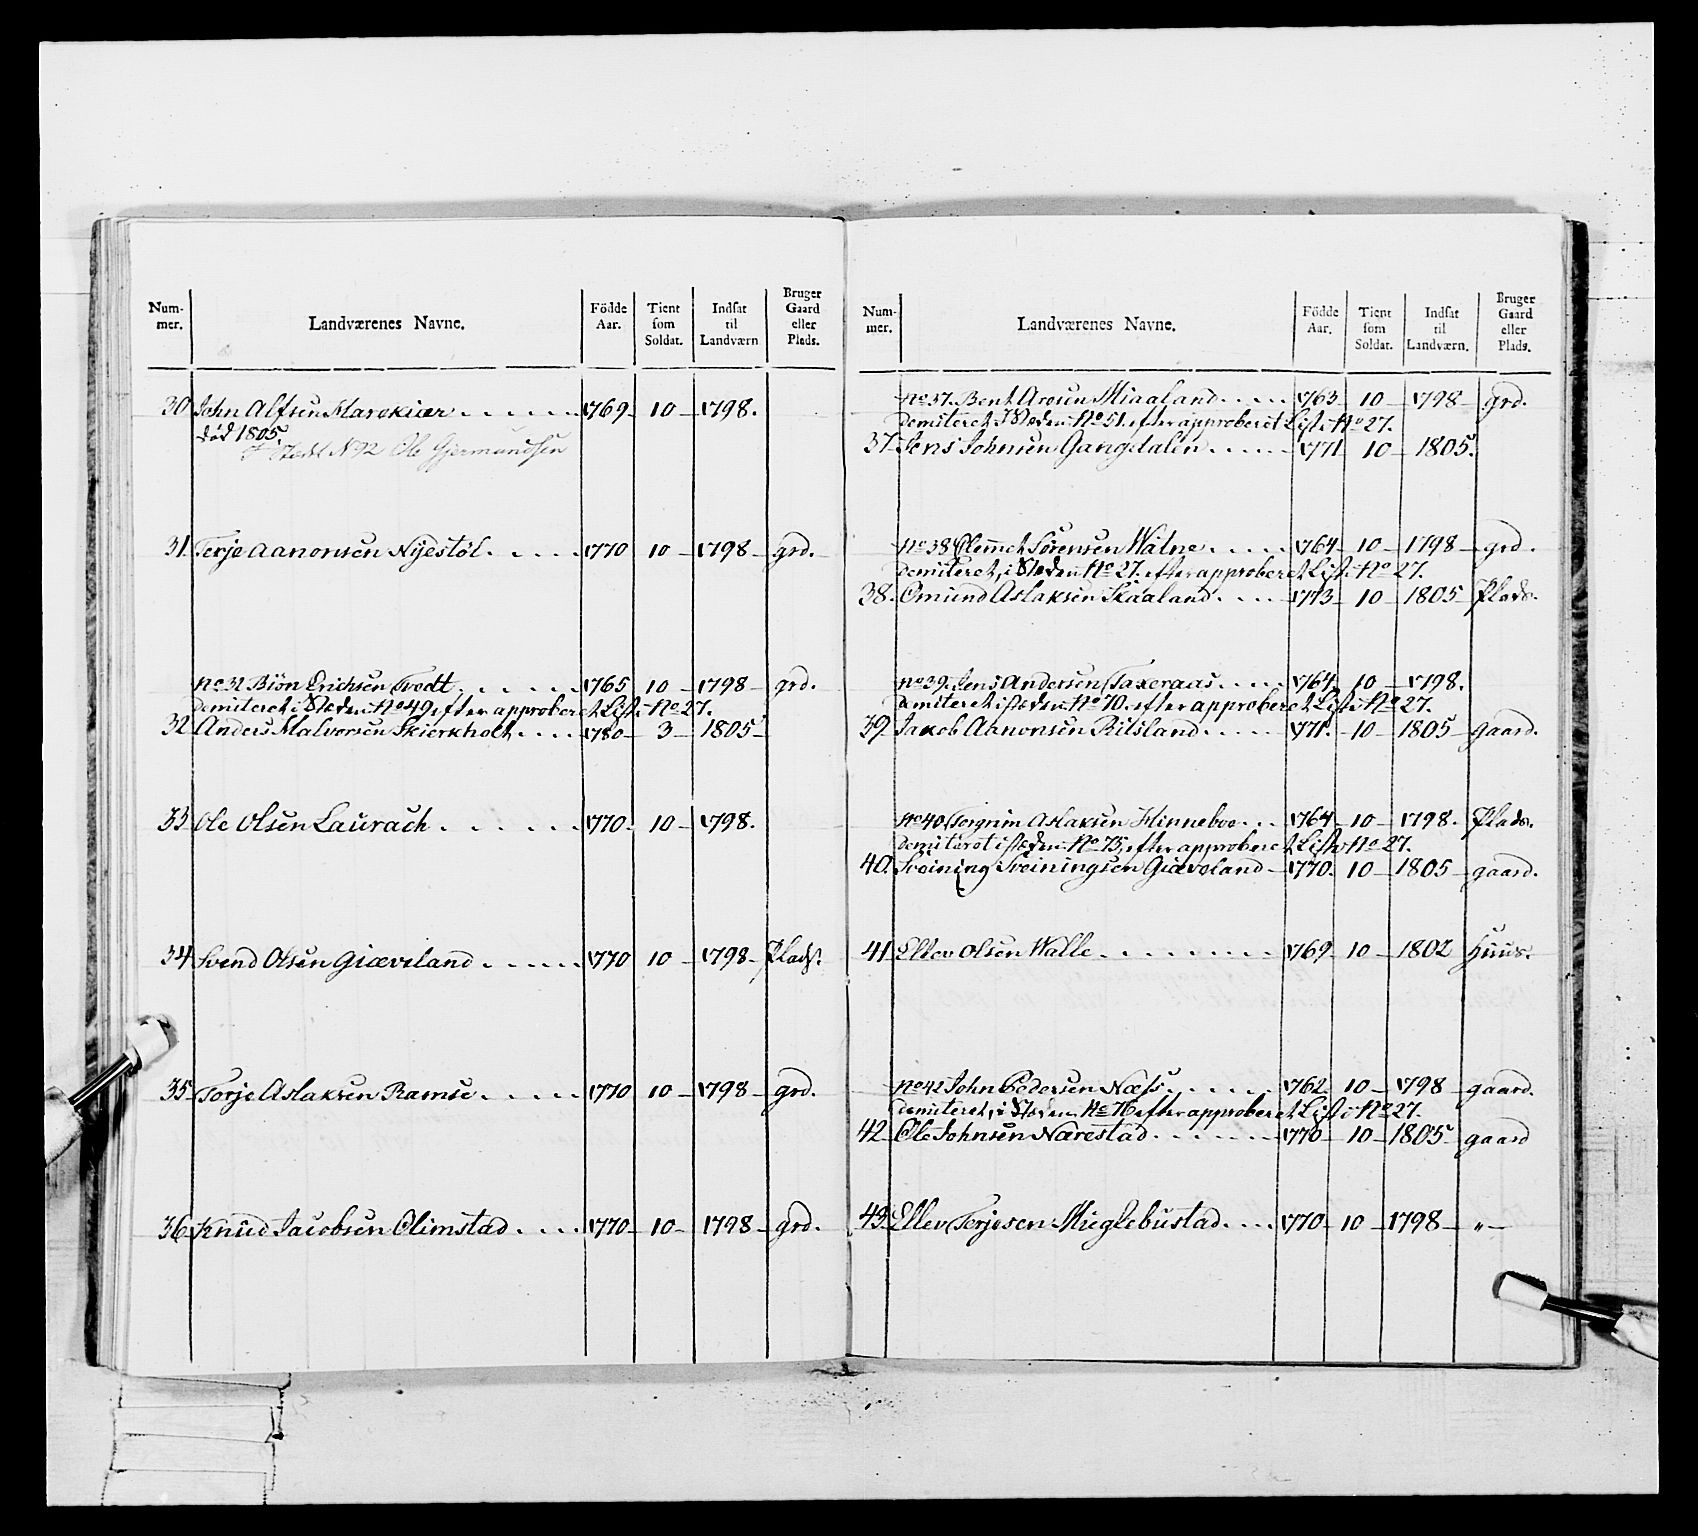 Num-
mer.
Landværenes Navne.
Födde
Aar.
Tient
som
Soldat.
Indsat
til
Landværn
Bruger
Gaard
eller
Plads.
30 John Alfsen Marekiær 1769 10 1798.
död 1805.
I Stedet N 92 Ole Gjermundsen
31. Terje Aanonsen Nijestöl 1770 10 1798 grd.
No 32 Biön Erichsen Tvedt 1765 10 1798 grd.
demiteret i Steden No 49 efter approberet Liste No 27.
32 Anders Halvorsen Skierkholt 1780 3 1805
33 Ole Olsen Laurach 1770 10 1798.
34 Svend Olsen Giæveland 1770 10 1798 Plads.
35 Torje Aslaksen Ramse 1770 10 1798 grd.
36 Knud Jacobsen Olimstad 1770 10 1798 grd.
Num-
mer.
Landværenes Navne.
Födde
Aar.
Tient
som
Soldat.
Indsat
til
Landværn.
Bruger
Gaard
eller
Plads.
No 37. Bent Miaaland 1763 10 1798 grd.
demiteret, I Steden No 51. efter approberet Liste No 27.
37 Jens Johnsen Gangdalen 1771 10 1805.
No 38 Clemmet Sörensen Watne 1764 10 1798 grd.
demiteret, i Steden No 27. efter approberet Liste No 27.
38. Omund Aslaksen Skaaland 1773 10 1805 Plads.
No 39. Jens Andersen Taxeraas 1764 10 1798.
demiteret i steden No 70. efter approberet Liste No 27.
39 Jakob Aanonsen Rilsland 1771. 10 1805 gaard.
No 40 Torgrim Aslaksen Hinneboe 1764 10 1798. Plads.
demiteret i steden No 75, efter approberet Liste No 27.
40. Sveining Sveiningsen Giæveland 1770. 10 1805 gaard.
41 Ellev Olsen Walle 1769 10 1802 Huus.
No 42 John Pedersen Næss 1762 10 1798 gaard.
demiteret, i Steden No efter approberet Liste No 27.
42. Ole Johnsen Nærestad 1770 10 1805 gaard
43 Ellev Terjesen Mieglebustad 1770 10 1798 "